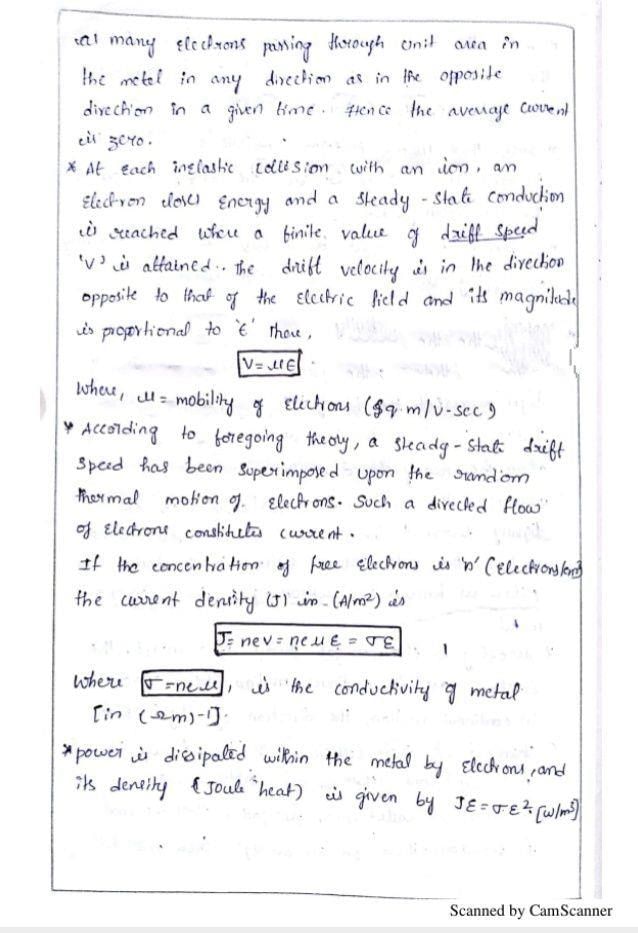 as many electrons passing through unit area in
the metel in any direction as in the opposite
direction in a given time. Hence the average current
is zero.
* At each inelastic collision with an ion, an
Electron loses Energy and a steady-state conduction
is reached where a finite value of drift speed
'v' is attained. The drift velocity is in the direction
opposite to that of the electric field and its magnitude
is proportional to 'ε' thou,
V = με
Where, μ = mobility of Electrons (Sq.m/v-sec)
* According to foregoing theoly, a steady-state drift
Speed has been superimposed upon the random
thermal motion of Electrons. Such a directed flow
of Electrons constitutes current.
If the concentration of free Electrons is 'n' (Electrons/cm3)
the current density (J) in (A/m²) is
J = nev = neμε = σε
where σ = neμ, is the conductivity of metal
[in (Ωm)-1].
* power is dissipated within the metal by Electrons, and
its density (Joule heat) is given by Jε = σε² [w/m3]
Scanned by CamScanner